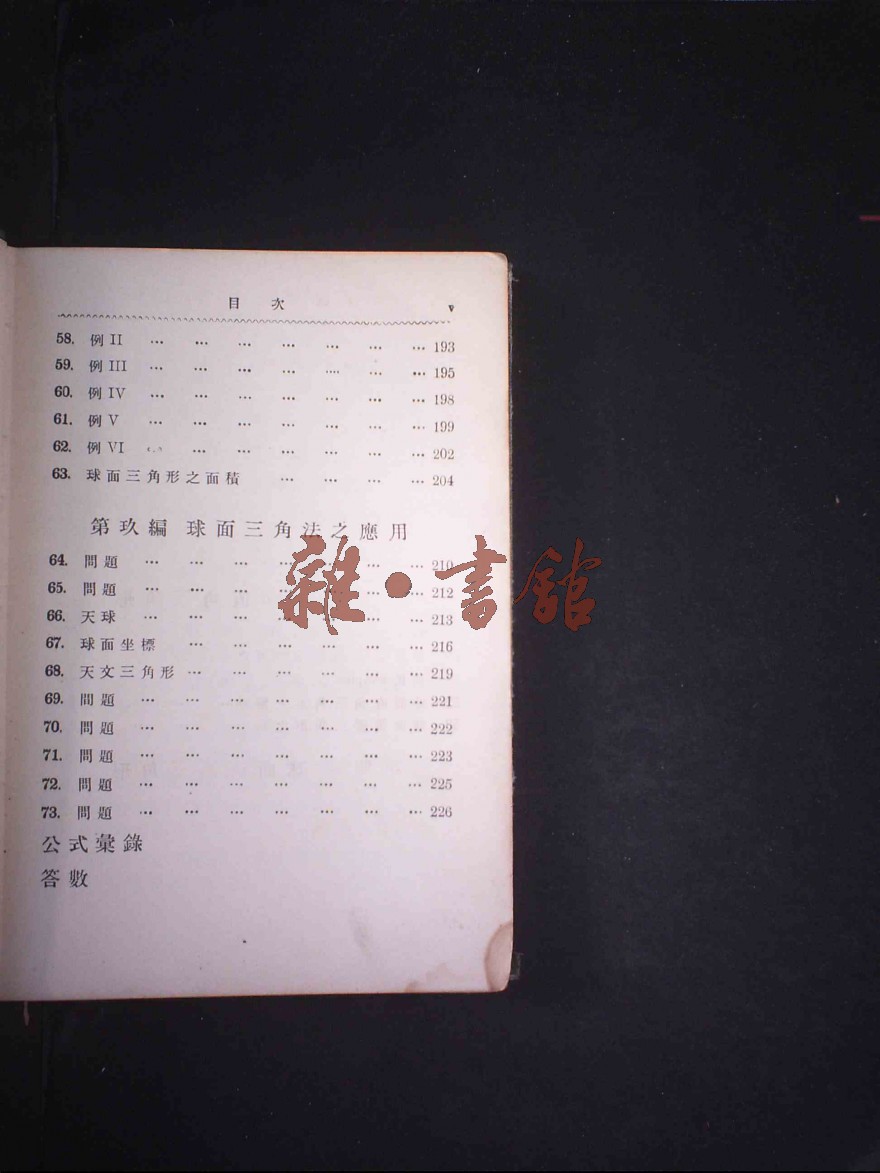 目 次 v
58. 例 II ... ... ... ... ... ... ... 193
59. 例 III ... ... ... ... ... ... ... 195
60. 例 IV ... ... ... ... ... ... ... 198
61. 例 V ... ... ... ... ... ... ... 199
62. 例 VI ... ... ... ... ... ... ... 202
63. 球面三角形之面積 ... ... ... ... 204
第玖編 球面三角法之應用
64. 問題 ... ... ... ... ... ... ... 210
65. 問題 ... ... ... ... ... ... ... 212
66. 天球 ... ... ... ... ... ... ... 213
67. 球面坐標 ... ... ... ... ... ... 216
68. 天文三角形 ... ... ... ... ... ... 219
69. 問題 ... ... ... ... ... ... ... 221
70. 問題 ... ... ... ... ... ... ... 222
71. 問題 ... ... ... ... ... ... ... 223
72. 問題 ... ... ... ... ... ... ... 225
73. 問題 ... ... ... ... ... ... ... 226
公式彙錄
答數
雜·書館